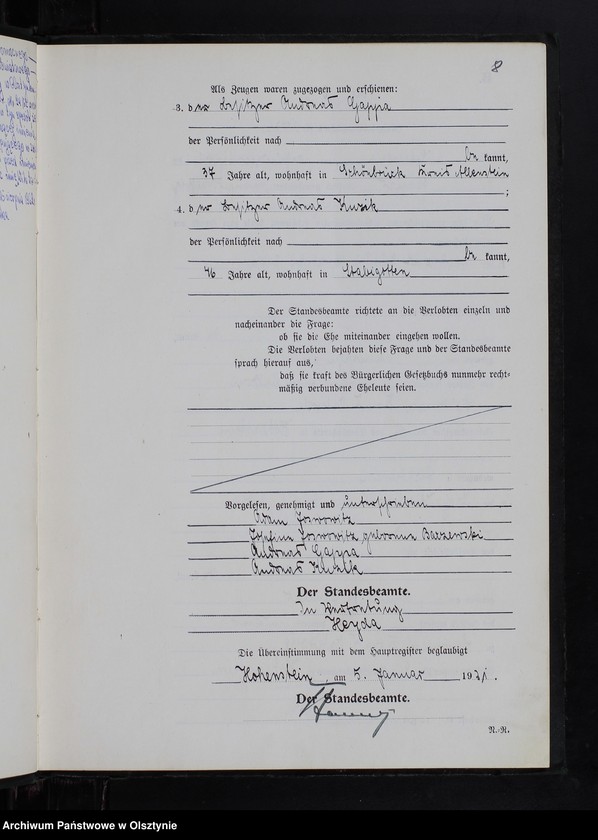 8
Als Zeugen waren zugezogen und erschienen:
3. der Besitzer Andreas Gappa
der Persönlichkeit nach
be kannt,
37 Jahre alt, wohnhaft in Schönbrück Kreis Allenstein
;
4. der Besitzer Andreas Kuzik
der Persönlichkeit nach
be kannt,
46 Jahre alt, wohnhaft in Stabigotten
Der Standesbeamte richtete an die Verlobten einzeln und
nacheinander die Frage:
ob sie die Ehe miteinander eingehen wollen.
Die Verlobten bejahten diese Frage und der Standesbeamte
sprach hierauf aus,
daß sie kraft des Bürgerlichen Gesetzbuchs nunmehr recht-
mäßig verbundene Eheleute seien.
Vorgelesen, genehmigt und unterschrieben
Adam
geborene Barczewski
Andreas Gappa
Andreas
Der Standesbeamte.
In Vertretung
Heyda
Die Übereinstimmung mit dem Hauptregister beglaubigt
Hohenstein, am 5. Januar 1931.
Der Standesbeamte.
N.-R.
Archiwum Państwowe w Olsztynie